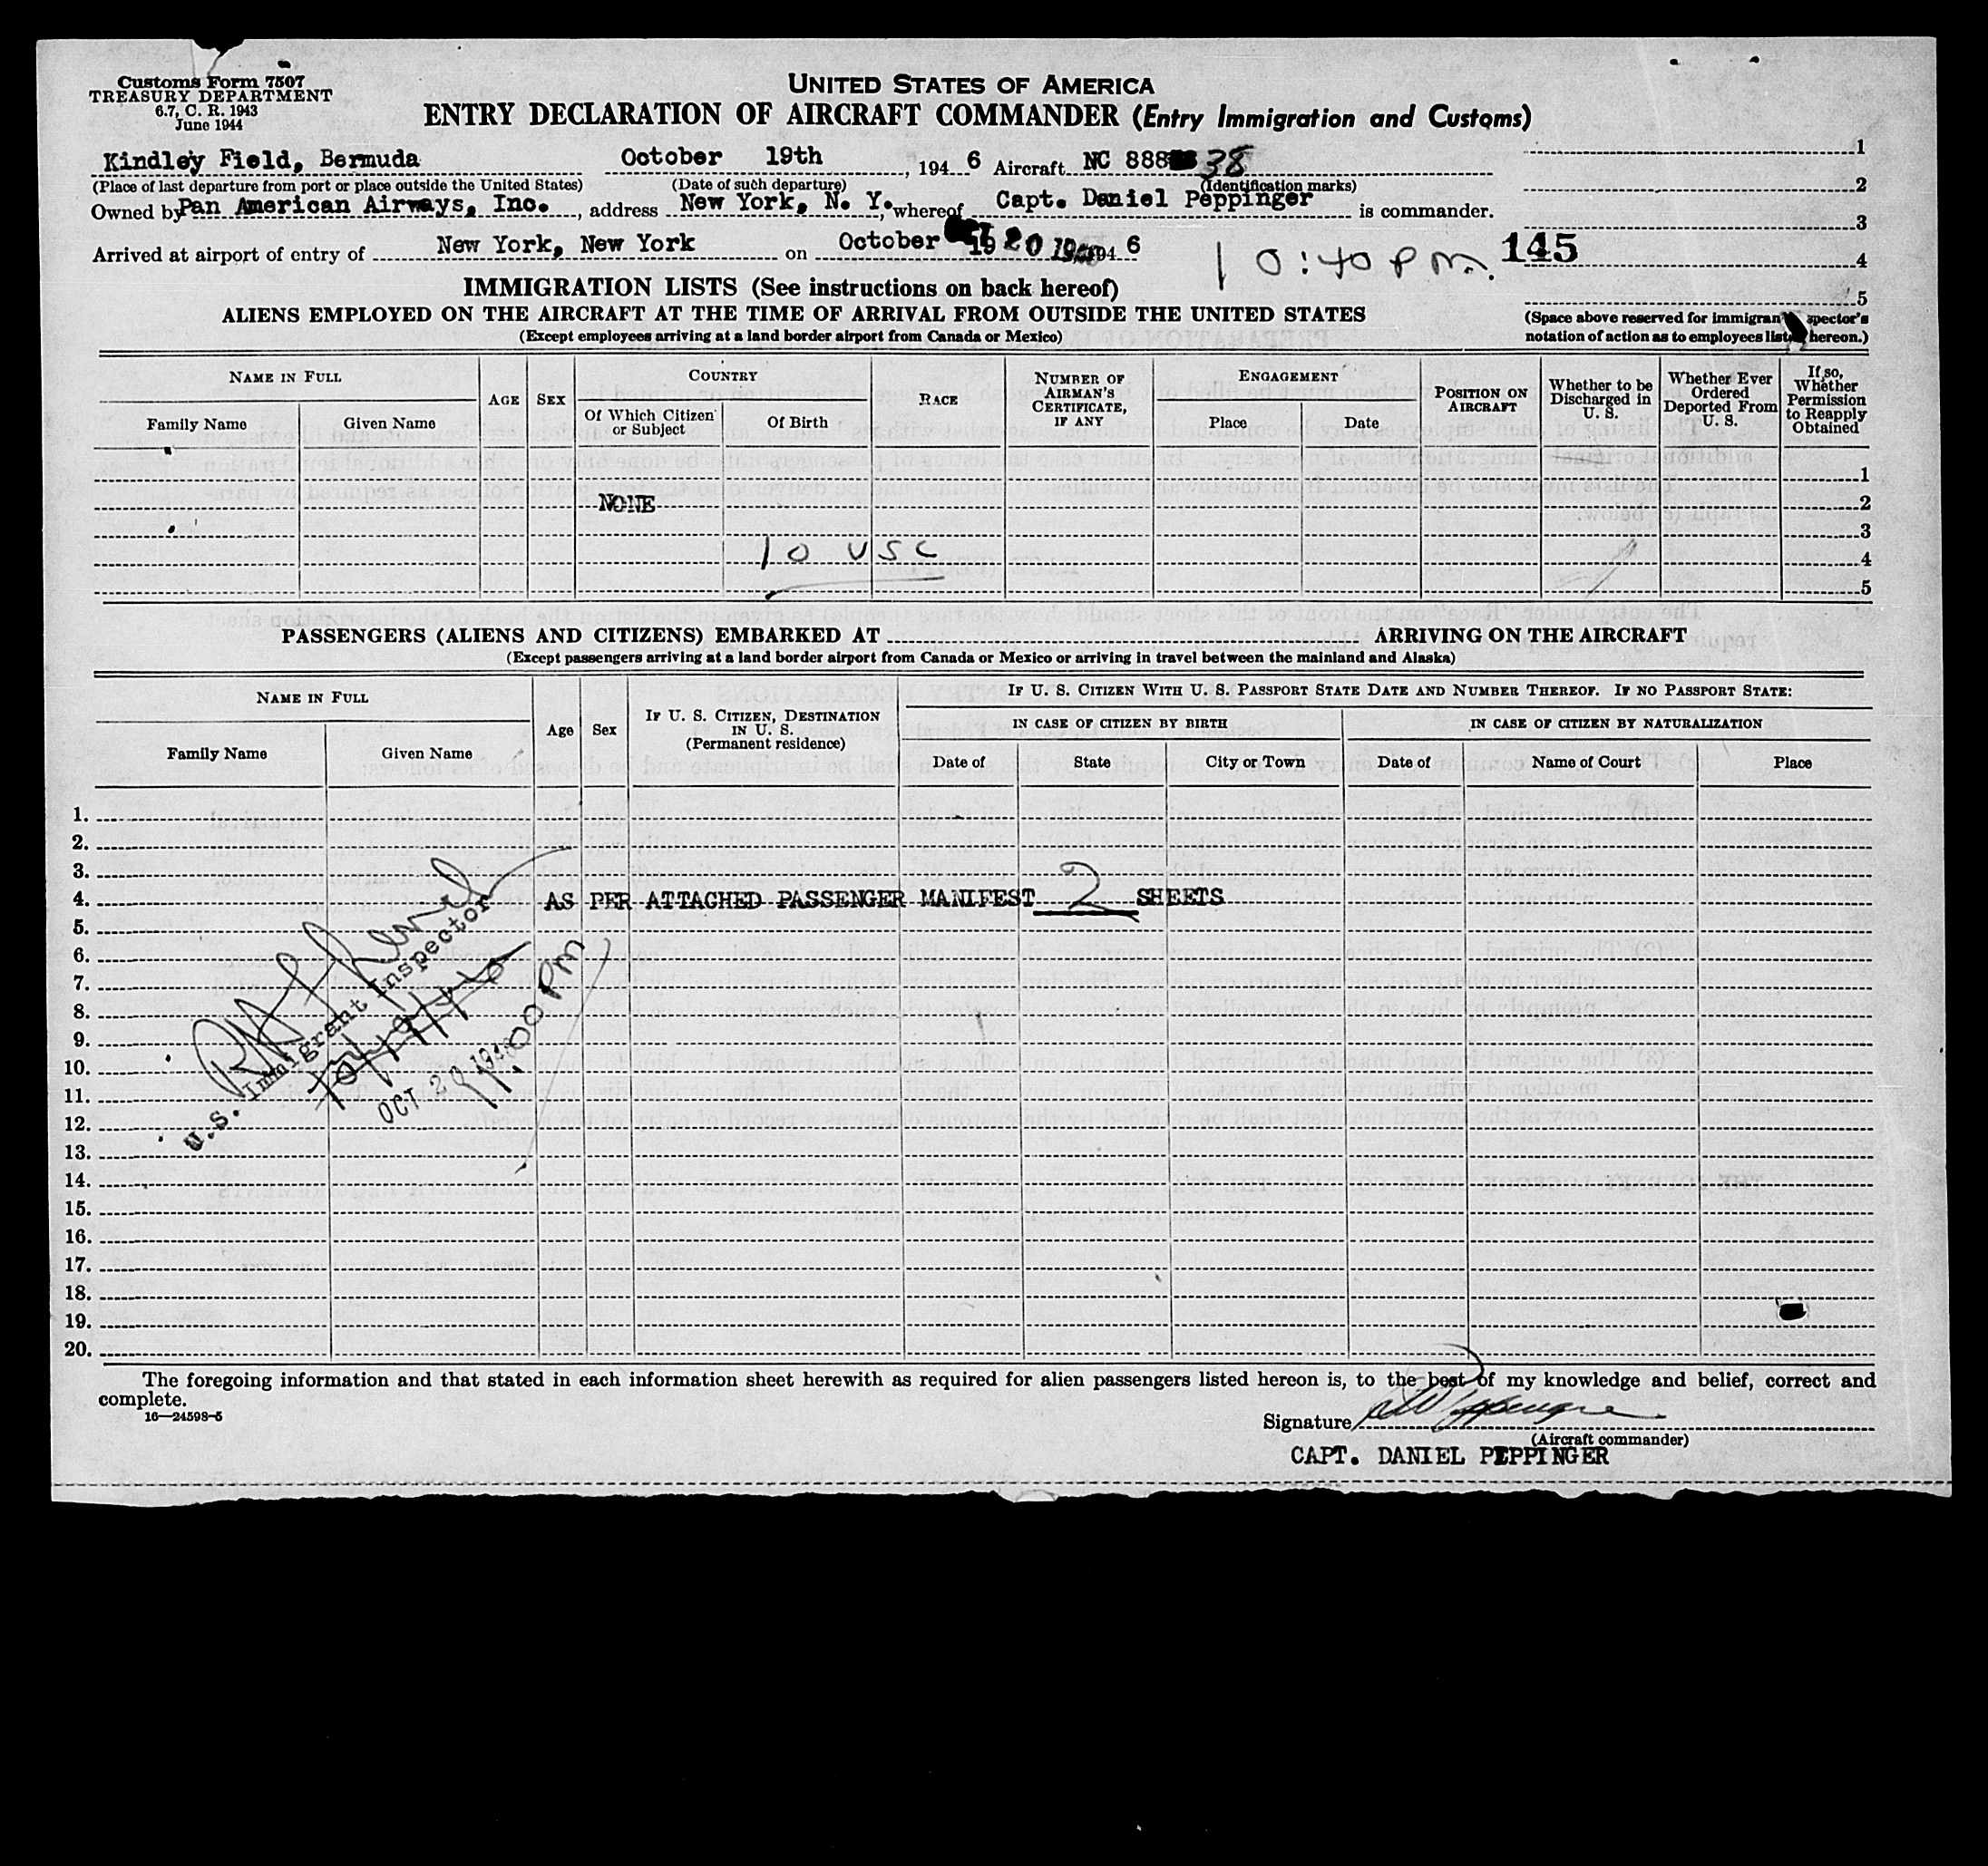 Customs Form 7507
TREASURY DEPARTMENT
6.7, C. R. 1943
June 1944
UNITED STATES OF AMERICA
ENTRY DECLARATION OF AIRCRAFT COMMANDER (Entry Immigration and Customs)
Kindley Field, Bermuda October 19th, 194 6 Aircraft NC 888 38
(Place of last departure from port or place outside the United States) (Date of such departure) (Identification marks)
Owned by Pan American Airways, Inc., address New York, N. Y., whereof Capt. Daniel Peppinger is commander.
Arrived at airport of entry of New York, New York on October 19 20 194 6
10:40 PM. 145
1
2
3
4
5
(Space above reserved for immigran spector's
notation of action as to employees list hereon.)
IMMIGRATION LISTS (See instructions on back hereof)
ALIENS EMPLOYED ON THE AIRCRAFT AT THE TIME OF ARRIVAL FROM OUTSIDE THE UNITED STATES
(Except employees arriving at a land border airport from Canada or Mexico)
NAME IN FULL
Family Name Given Name
AGE
SEX
COUNTRY
Of Which Citizen or Subject
Of Birth
RACE
NUMBER OF AIRMAN'S CERTIFICATE, IF ANY
ENGAGEMENT
Place Date
POSITION ON AIRCRAFT
Whether to be Discharged in U. S.
Whether Ever Ordered Deported From U. S.
If so, Whether Permission to Reapply Obtained
1
NONE 2
3
10 USC 4
5
PASSENGERS (ALIENS AND CITIZENS) EMBARKED AT ARRIVING ON THE AIRCRAFT
(Except passengers arriving at a land border airport from Canada or Mexico or arriving in travel between the mainland and Alaska)
NAME IN FULL
Family Name Given Name
Age
Sex
IF U. S. CITIZEN, DESTINATION IN U. S.
(Permanent residence)
IF U. S. CITIZEN WITH U. S. PASSPORT STATE DATE AND NUMBER THEREOF. IF NO PASSPORT STATE:
IN CASE OF CITIZEN BY BIRTH IN CASE OF CITIZEN BY NATURALIZATION
Date of State City or Town Date of Name of Court Place
1.
2.
3.
4. AS PER ATTACHED PASSENGER MANIFEST 2 SHEETS
5.
6.
7.
8.
9.
10.
11.
12.
13.
14.
15.
16.
17.
18.
19.
20.
U.S. Immigrant Inspector
OCT 20 1946
11:00 PM
The foregoing information and that stated in each information sheet herewith as required for alien passengers listed hereon is, to the best of my knowledge and belief, correct and
complete.
16—24598-5
Signature
(Aircraft commander)
CAPT. DANIEL PEPPINGER